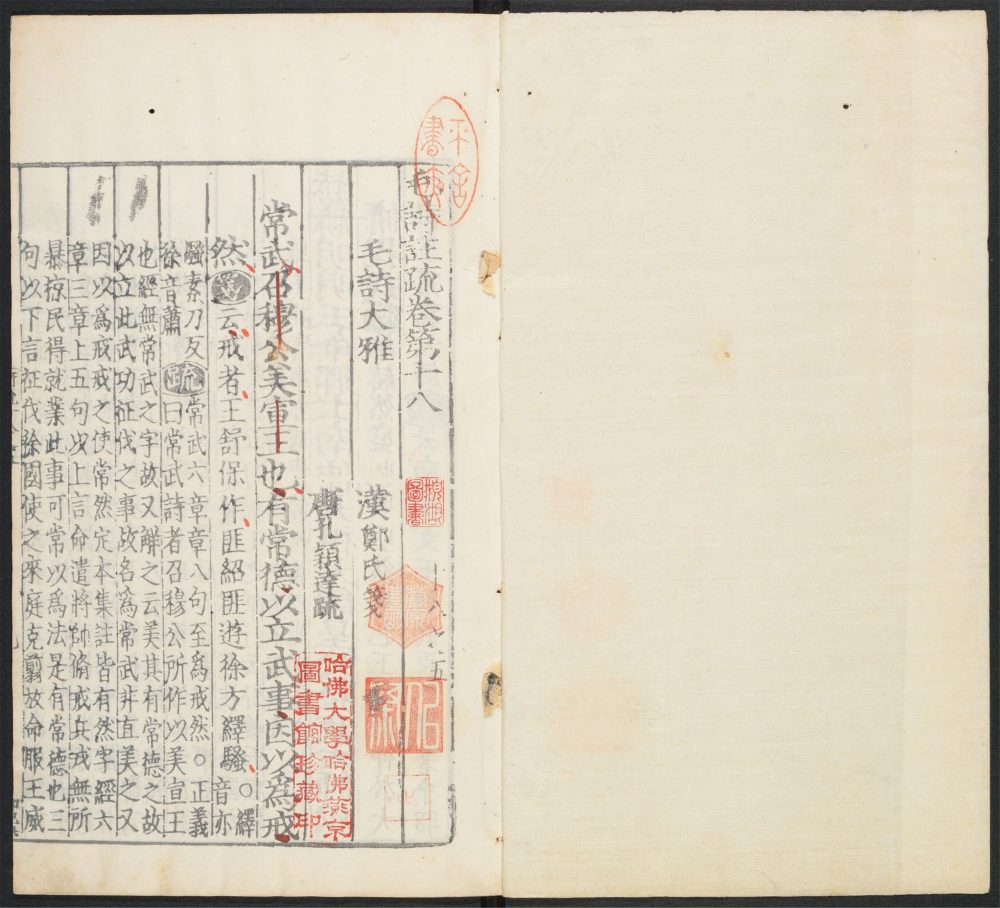 毛詩註疏卷第十八
十八之五
毛詩大雅
漢鄭氏箋
唐孔穎達疏
常武召穆公美宣王也有常德以立武事因以爲戒
然箋云戒者王舒保作匪紹匪遊徐方繹騷○繹音亦
騷素刀反
徐音蕭
疏
常武六章章八句至爲戒然○正義
曰常武詩者召穆公所作以美宣王
也經無常武之字故又解之云美其有常德之故
以立此武功征伐之事故名爲常武非直美之又
因以爲戒戒之使常然定本集註皆有然字經六
章三章上五句以上言命遣將帥脩戒兵戎無所
暴掠民得就業此事可常以爲法是有常德也三
句以下言征伐徐國使之來庭克翦放命服王威
哈佛大學哈佛燕京
圖書館珍藏印
圖書